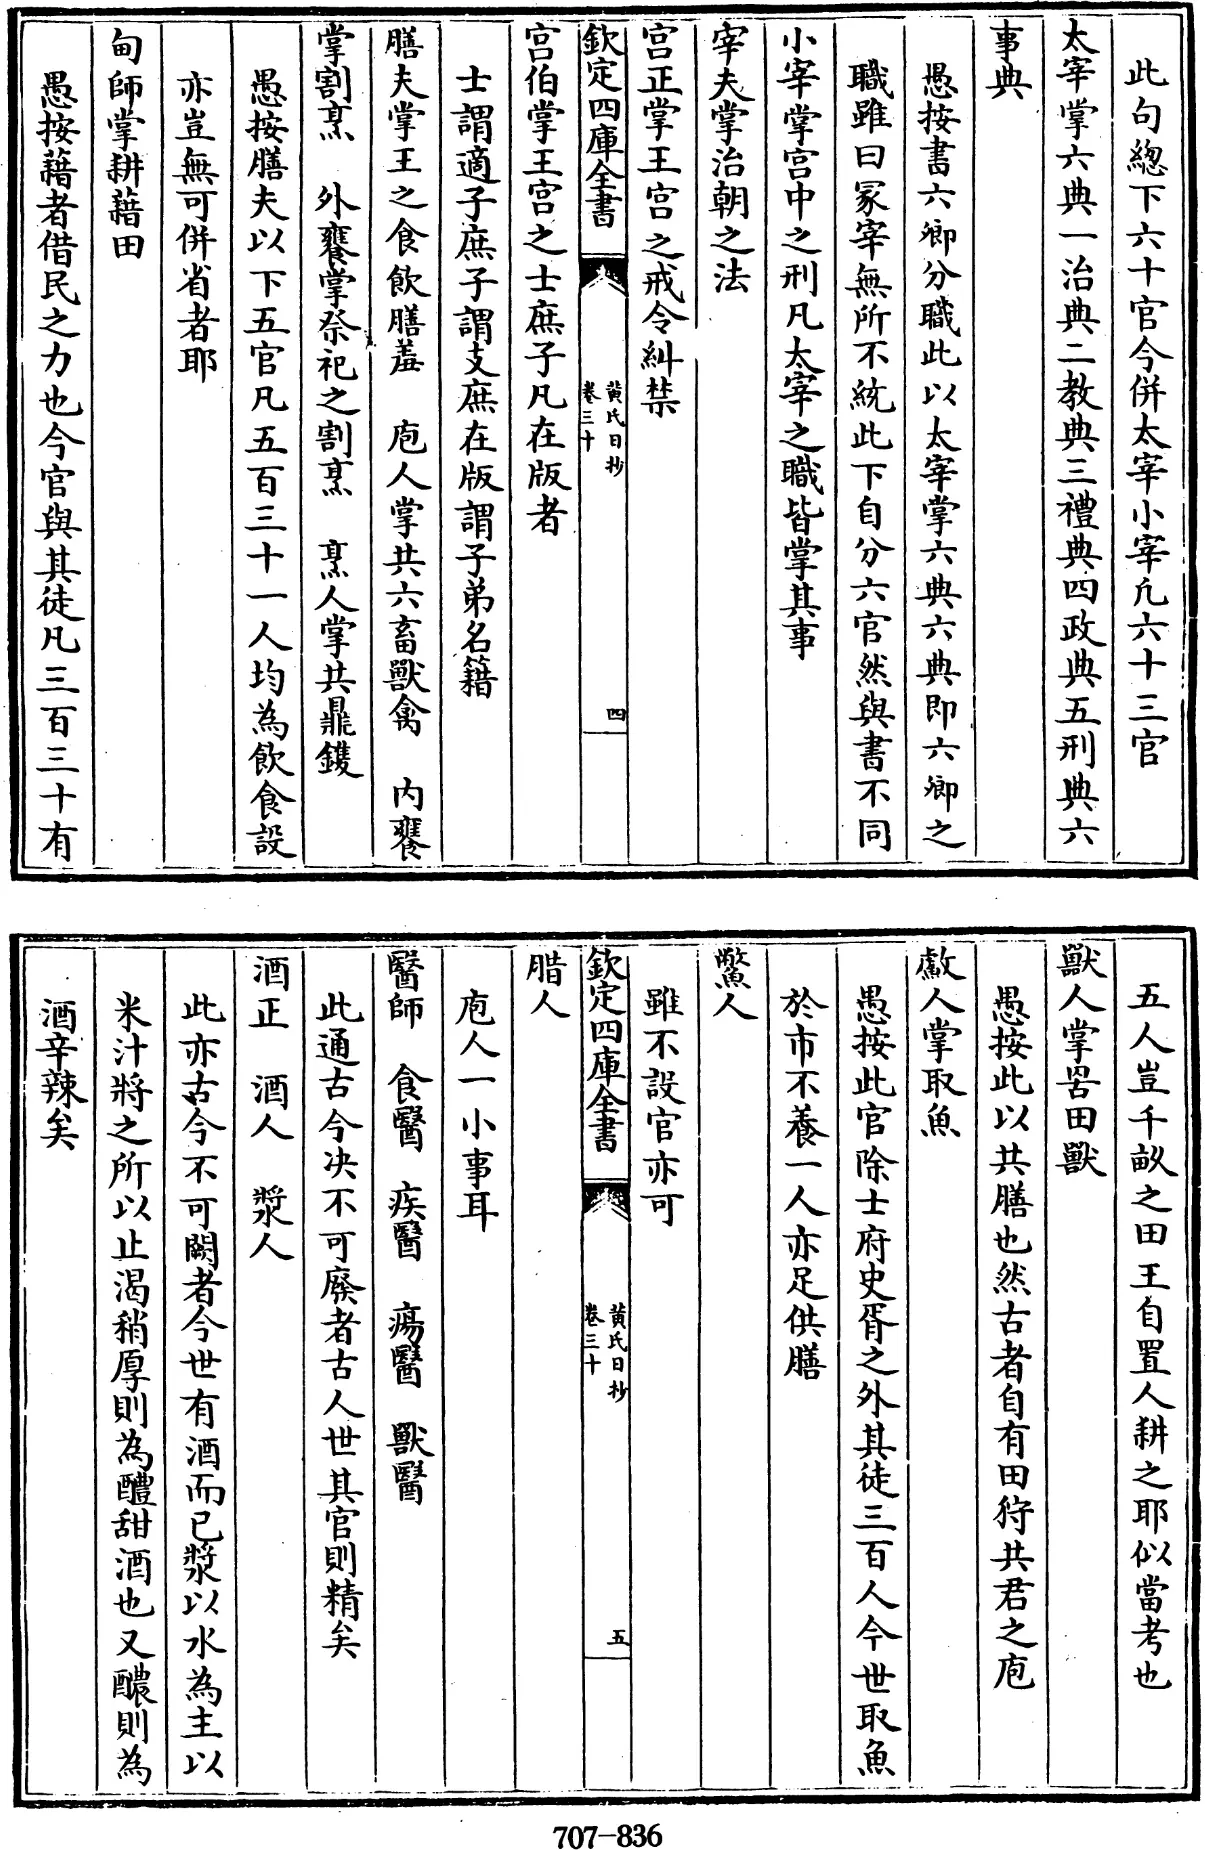 此句緫下六十官今併太宰小宰凢六十三官
太宰掌六典一治典二教典三禮典四政典五刑典六
事典
愚按書六卿分職此以太宰掌六典六典即六卿之
職雖曰冡宰無所不統此下自分六官然與書不同
小宰掌宫中之刑凡太宰之職皆掌其事
宰夫掌治朝之法
宫正掌王宫之戒令糾禁
欽定四庫全書
黄氏日抄
卷三十
四
宫伯掌王宫之士庶子凡在版者
士謂適子庶子謂支庶在版謂子弟名籍
膳夫掌王之食飲膳羞 庖人掌共六畜獸禽 内饔
掌割烹 外饔掌祭祀之割烹 烹人掌共鼎鑊
愚按膳夫以下五官凡五百三十一人均為飲食設
亦豈無可併省者耶
甸師掌耕藉田
愚按藉者借民之力也今官與其徒凡三百三十有
五人豈千畝之田王自置人耕之耶似當考也
獸人掌罟田獸
愚按此以共膳也然古者自有田狩共君之庖
䱷人掌取魚
愚按此官除士府史胥之外其徒三百人今世取魚
於市不養一人亦足供膳
鱉人
雖不設官亦可
欽定四庫全書
黄氏日抄
卷三十
五
腊人
庖人一小事耳
醫師 食醫 疾醫 瘍醫 獸醫
此通古今决不可廢者古人世其官則精矣
酒正 酒人 漿人
此亦古今不可闕者今世有酒而已漿以水為主以
米汁將之所以止渴稍厚則為醴甜酒也又醲則為
酒辛辣矣
707-836